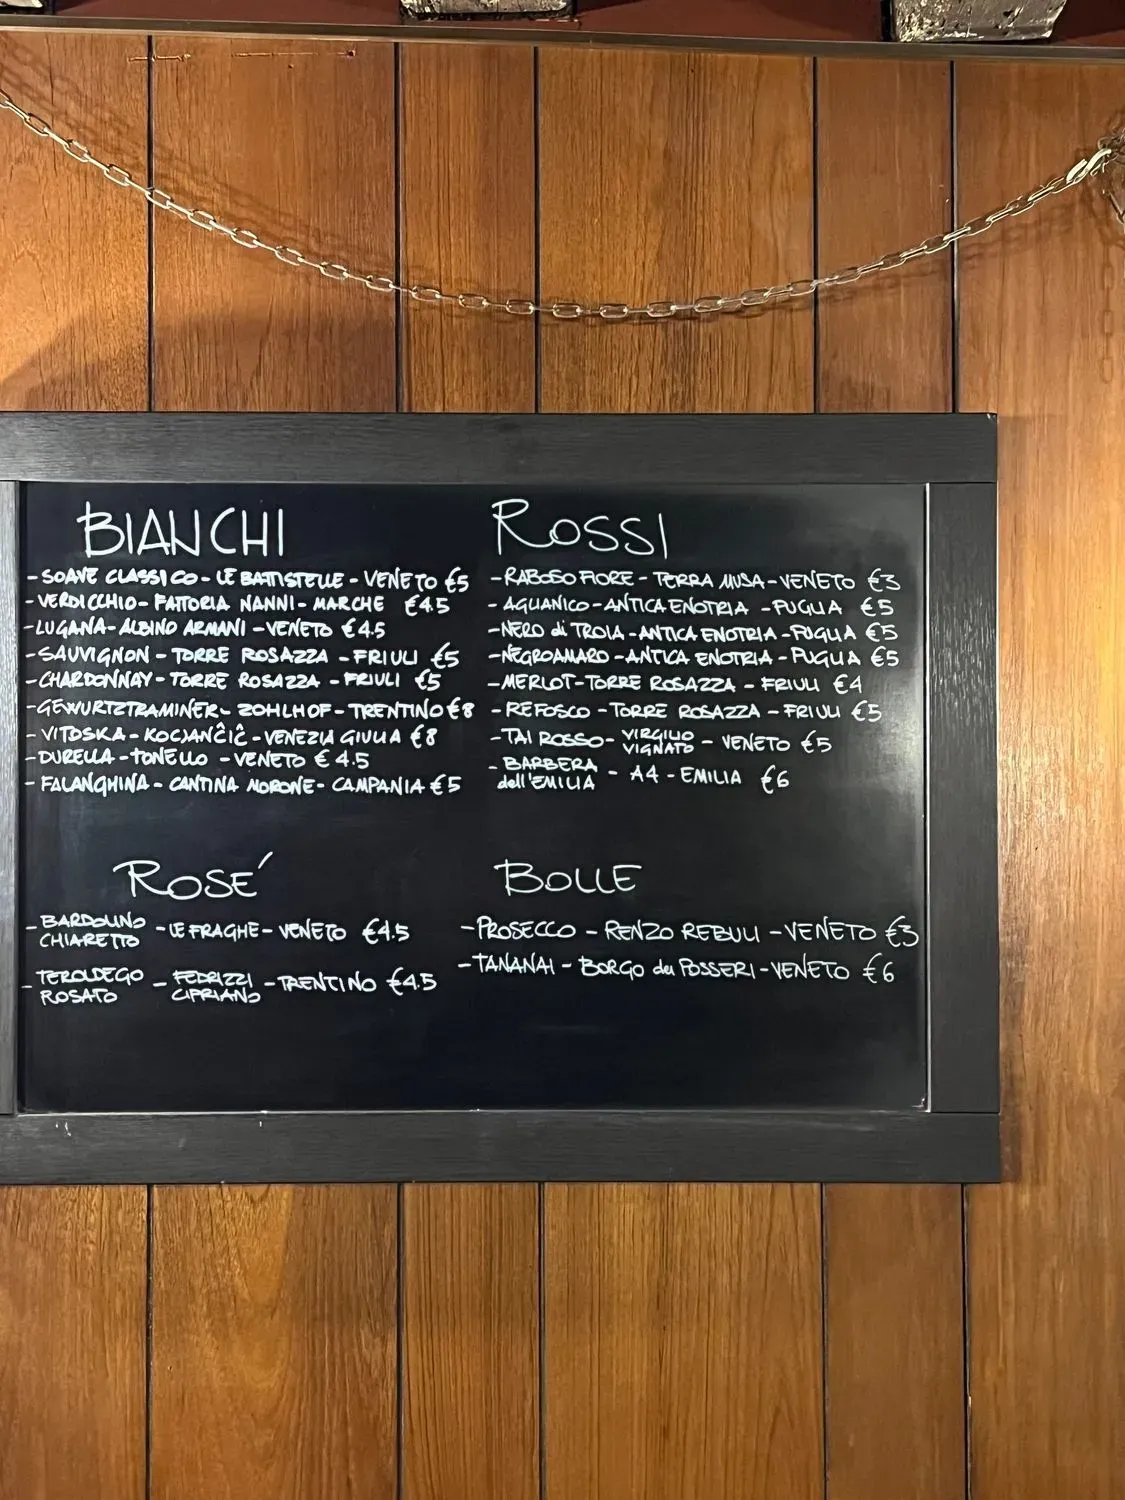 BIANCHI
- SOAVE CLASSICO - LE BATTISTELLE - VENETO €5
- VERDICCHIO - FATTORIA NANNI - MARCHE €4.5
- LUGANA - ALBINO ARMANI - VENETO €4.5
- SAUVIGNON - TORRE ROSAZZA - FRIULI €5
- CHARDONNAY - TORRE ROSAZZA - FRIULI €5
- GEWURTZTRAMINER - ZOHLHOF - TRENTINO €8
- VITOSKA - KOCJANČIČ - VENEZIA GIULIA €8
- DURELLA - TONELLO - VENETO €4.5
- FALANGHINA - CANTINA MORONE - CAMPANIA €5
ROSSI
- RABOSO FIORE - TERRA MUSA - VENETO €3
- AGLIANICO - ANTICA ENOTRIA - PUGLIA €5
- NERO di TROIA - ANTICA ENOTRIA - PUGLIA €5
- NEGROAMARO - ANTICA ENOTRIA - PUGLIA €5
- MERLOT - TORRE ROSAZZA - FRIULI €4
- REFOSCO - TORRE ROSAZZA - FRIULI €5
- TAI ROSSO - VIRGILIO VIGNATO - VENETO €5
- BARBERA dell'EMILIA - A4 - EMILIA €6
ROSE´
- BARDOLINO CHIARETTO - LE FRAGHE - VENETO €4.5
- TEROLDEGO ROSATO - FEDRIZZI CIPRIANO - TRENTINO €4.5
BOLLE
- PROSECCO - RENZO REBULI - VENETO €3
- TANANAI - BORGO dei POSSERI - VENETO €6